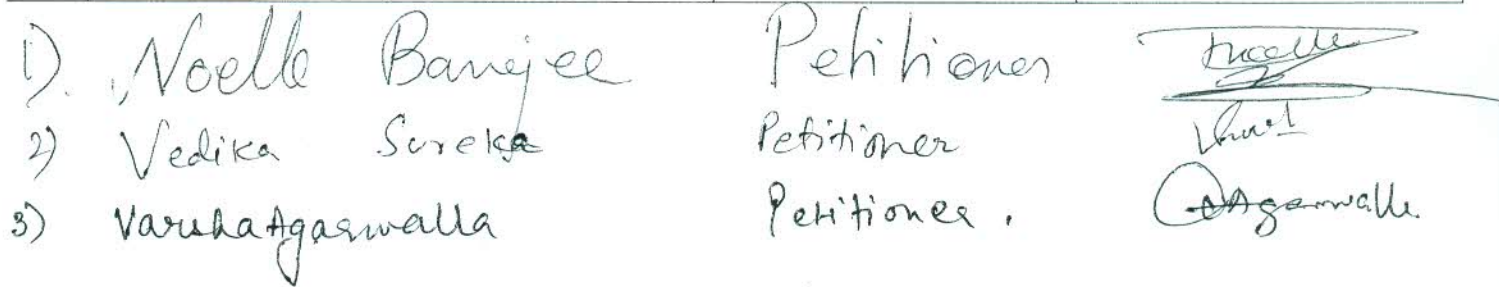 1). Noelle Banejee Petitioner
2) Vedika Sureka Petitioner
3) Varsha Agarwalla Petitioner. Agarwalla